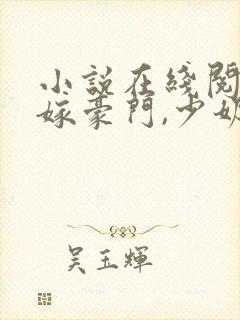 小説在綫閱
嫁豪門,少奶
吴玉輝